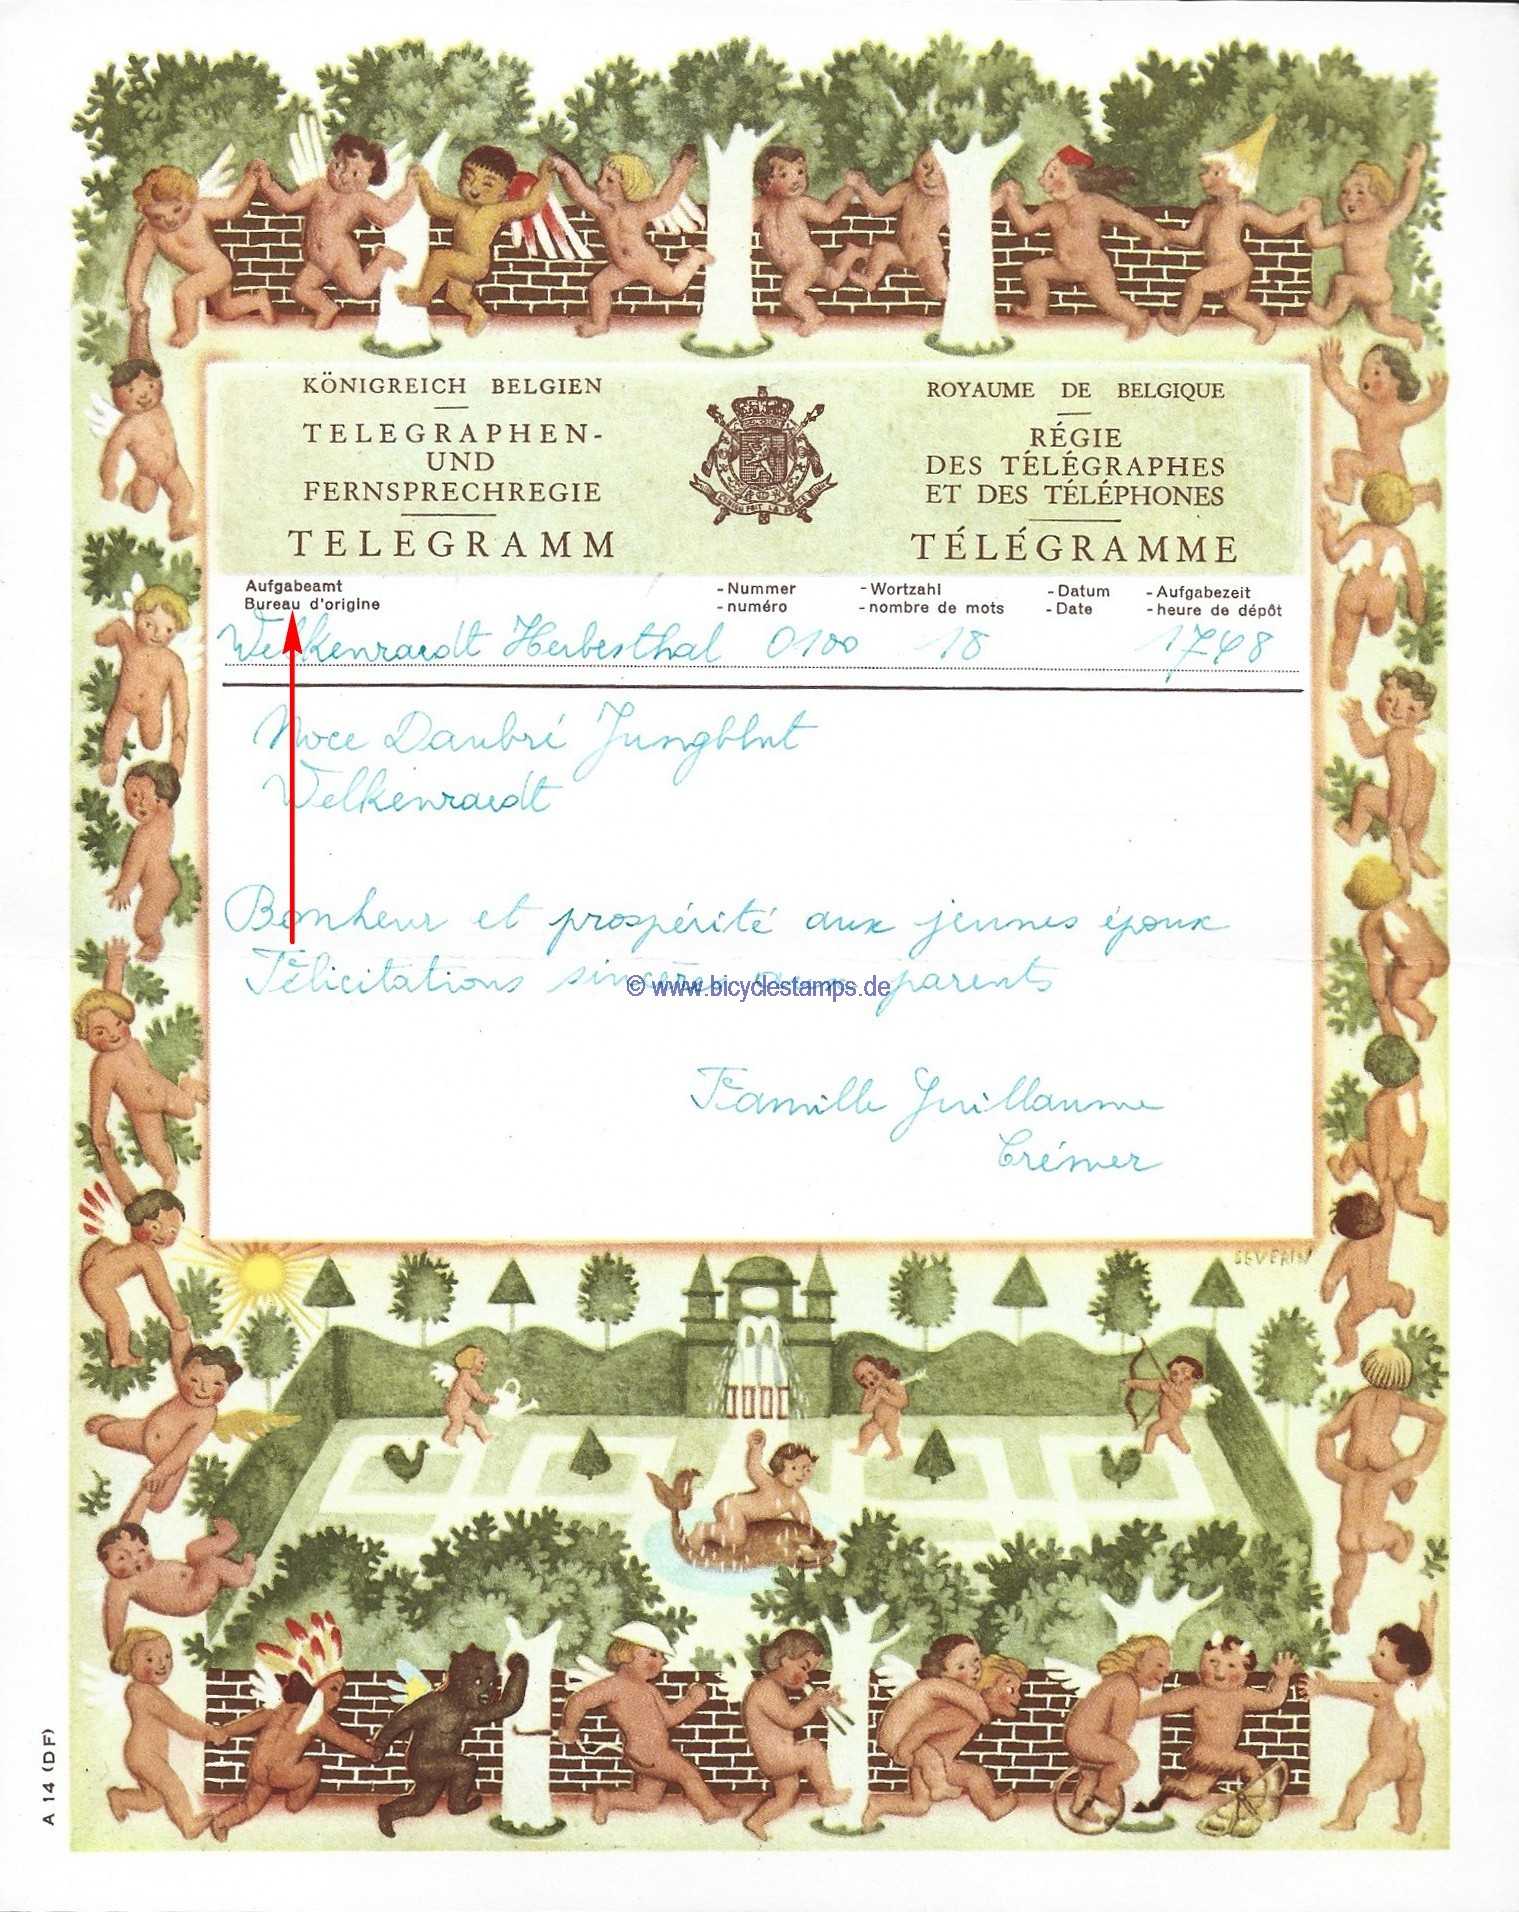 KÖNIGREICH BELGIEN
TELEGRAPHEN-
UND
FERNSPRECHREGIE
TELEGRAMM
ROYAUME DE BELGIQUE
RÉGIE
DES TÉLÉGRAPHES
ET DES TÉLÉPHONES
TÉLÉGRAMME
L'UNION FAIT LA FORCE
Aufgabeamt - Nummer - Wortzahl - Datum - Aufgabezeit
Bureau d'origine - numéro - nombre de mots - Date - heure de dépôt
Welkenraedt Herbesthal 0100 18 1748
Noce Daubré Jungblut
Welkenraedt
Bonheur et prospérité aux jeunes époux
Félicitations sincères aux parents
© www.bicyclestamps.de
Famille Guillaume
Crémer
SEVERIN
A 14 (DF)